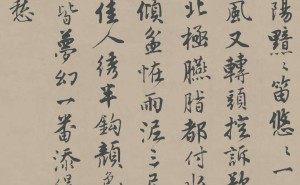 陽黯黯笛悠悠一
風又轉頭控訴
北極臙脂都付
傾盆恠雨泥三尺
佳人繡半鉤顏色
皆夢幻一番添得
愁